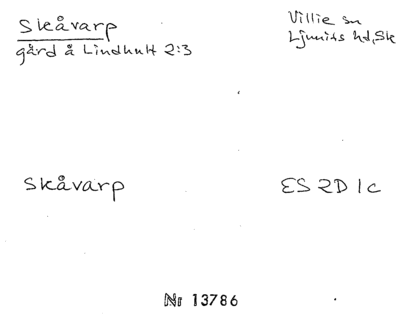 Skåvarp
gård å Lindhult 2:3
Villie sn
Ljunits hd, Sk
Skåvarp
ES 2D 1c
Nr 13786